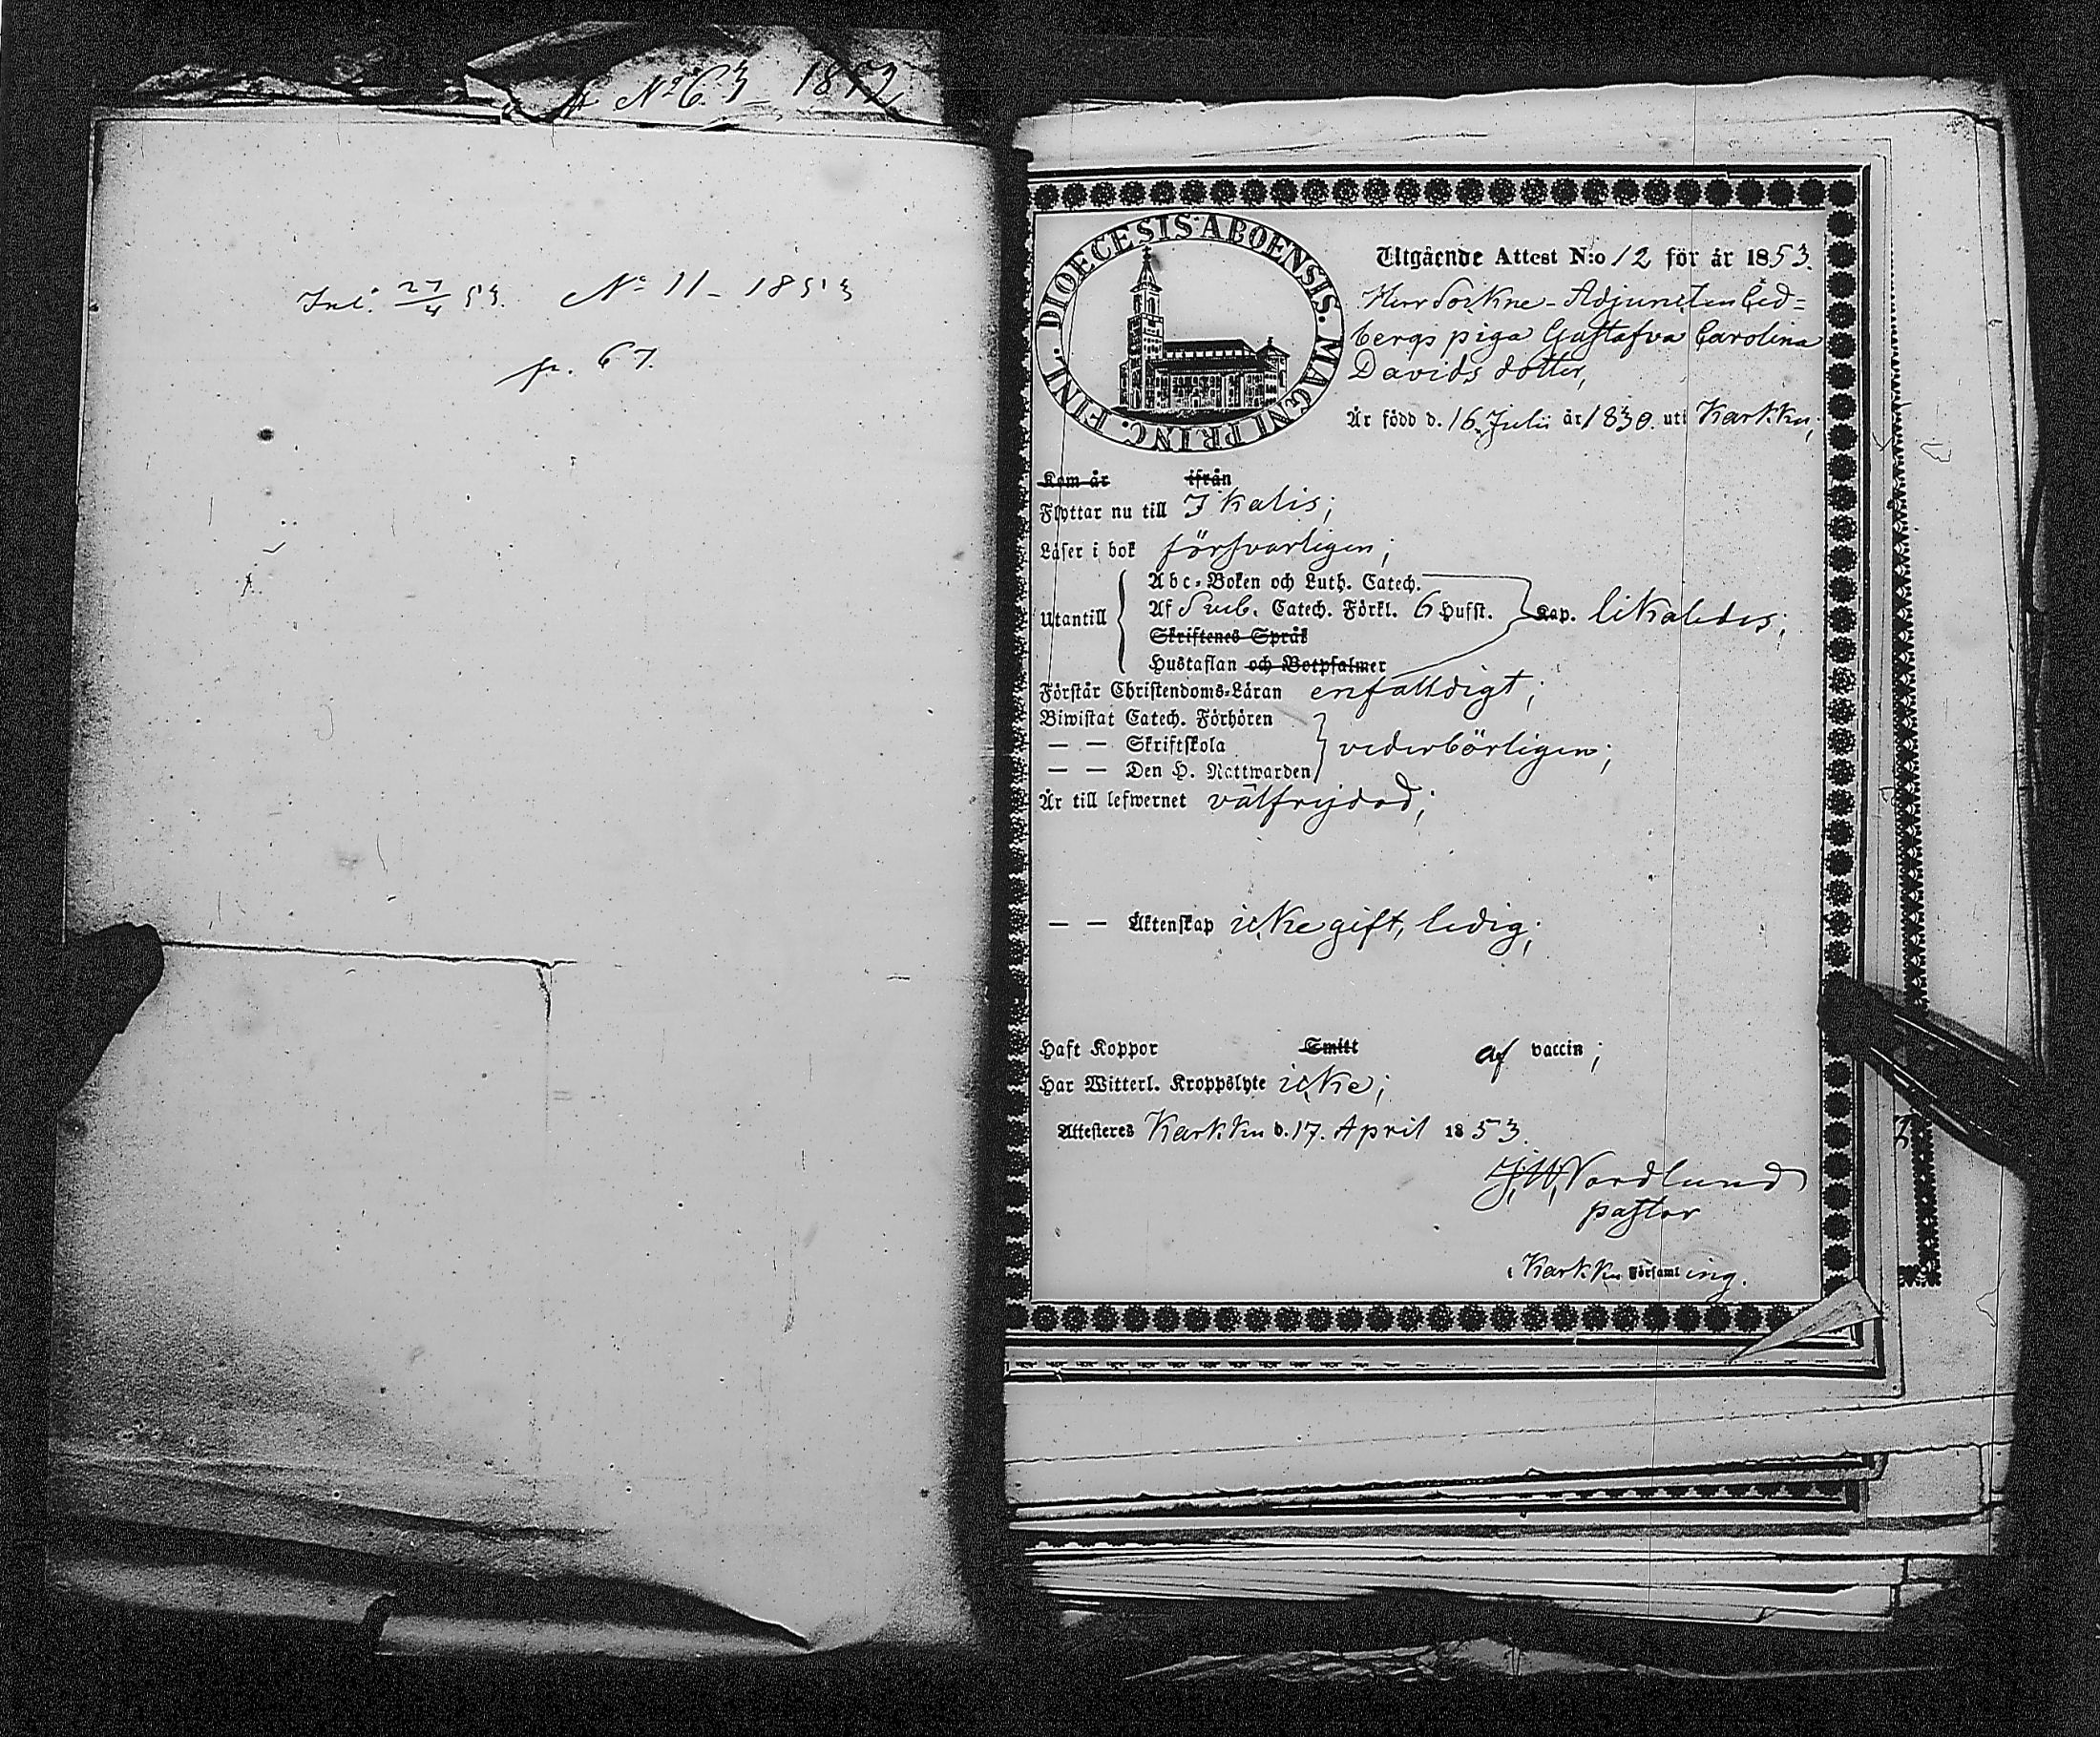 Nº 63 1852
Inl. 27/4 53. Nº 11 - 1853
p. 67.
DIOECESIS ABOENSIS. MAGNI PRINC. FINL.
Utgående Attest N:o 12 för år 1853.
Herr Sockne-Adjuncten Ced=
bergs piga Gustafva Carolina
Davids dotter,
Är född d. 16 Julii år 1830. uti Karkku;
Kom år ifrån
Flyttar nu till Ikalis;
Läser i bok försvarligen;
Abc-Boken och Luth. Catech.
Utantill Af Sveb. Catech. Förkl. 6 Hufst. Kap. likaledes;
Skriftenes Språk
Hustaflan och Botpsalmer
Förstår Christendoms-Läran enfaldigt;
Biwistat Catech. Förhören
— — Skriftskola vederbörligen;
— — Den H. Nattwarden
Är till lefwernet välfrejdad;
— — Äktenskap icke gift, ledig;
Haft Koppor Smitt af vaccin;
Har Witterl. Kroppslyte icke;
Attesteras Karkku d. 17. April 1853.
Nordlund
pastor
i Karkku Församling.